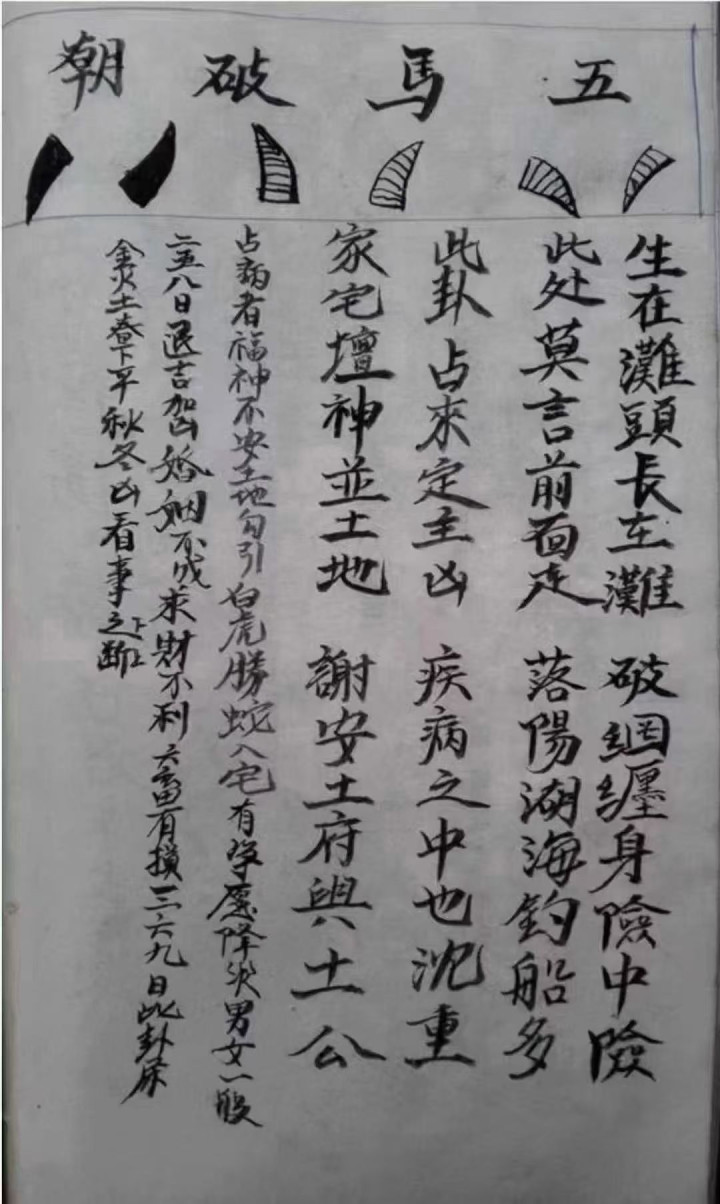 五馬破朝
生在灘頭長在灘 破網纏身險中險
此处莫言前面走 落陽湖海釣船多
此卦占來定主凶 疾病之中也沈重
家宅壇神並土地 謝安土府與土公
占病者福神不安土地勾引白虎騰蛇入宅有牢愿降災男女一般
二五八日退吉加凶婚姻不成求财不利六畜有損三六九日此卦屬
金火土春下平秋冬凶看事之下断